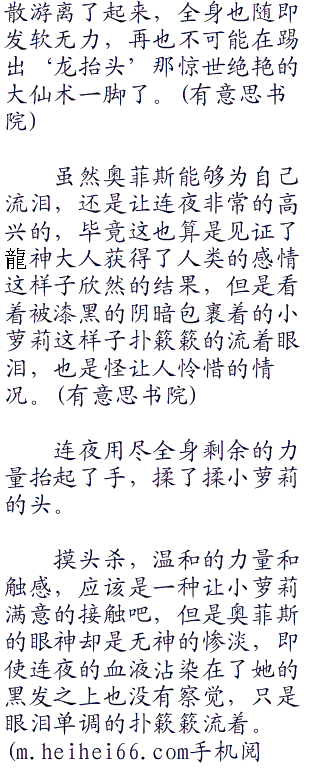 散游离了起来，全身也随即
发软无力，再也不可能在踢
出‘龙抬头’那惊世绝艳的
大仙术一脚了。(有意思书
院)
虽然奥菲斯能够为自己
流泪，还是让连夜非常的高
兴的，毕竟这也算是见证了
龍神大人获得了人类的感情
这样子欣然的结果，但是看
着被漆黑的阴暗包裹着的小
萝莉这样子扑簌簌的流着眼
泪，也是怪让人怜惜的情
况。(有意思书院)
连夜用尽全身剩余的力
量抬起了手，揉了揉小萝莉
的头。
摸头杀，温和的力量和
触感，应该是一种让小萝莉
满意的接触吧，但是奥菲斯
的眼神却是无神的惨淡，即
使连夜的血液沾染在了她的
黑发之上也没有察觉，只是
眼泪单调的扑簌簌流着。
(m.heihei66.com手机阅